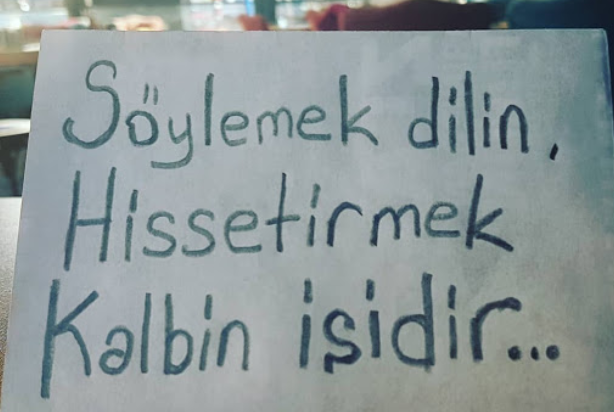 Söylemek dilin,
Hissetirmek
Kalbin işidir...